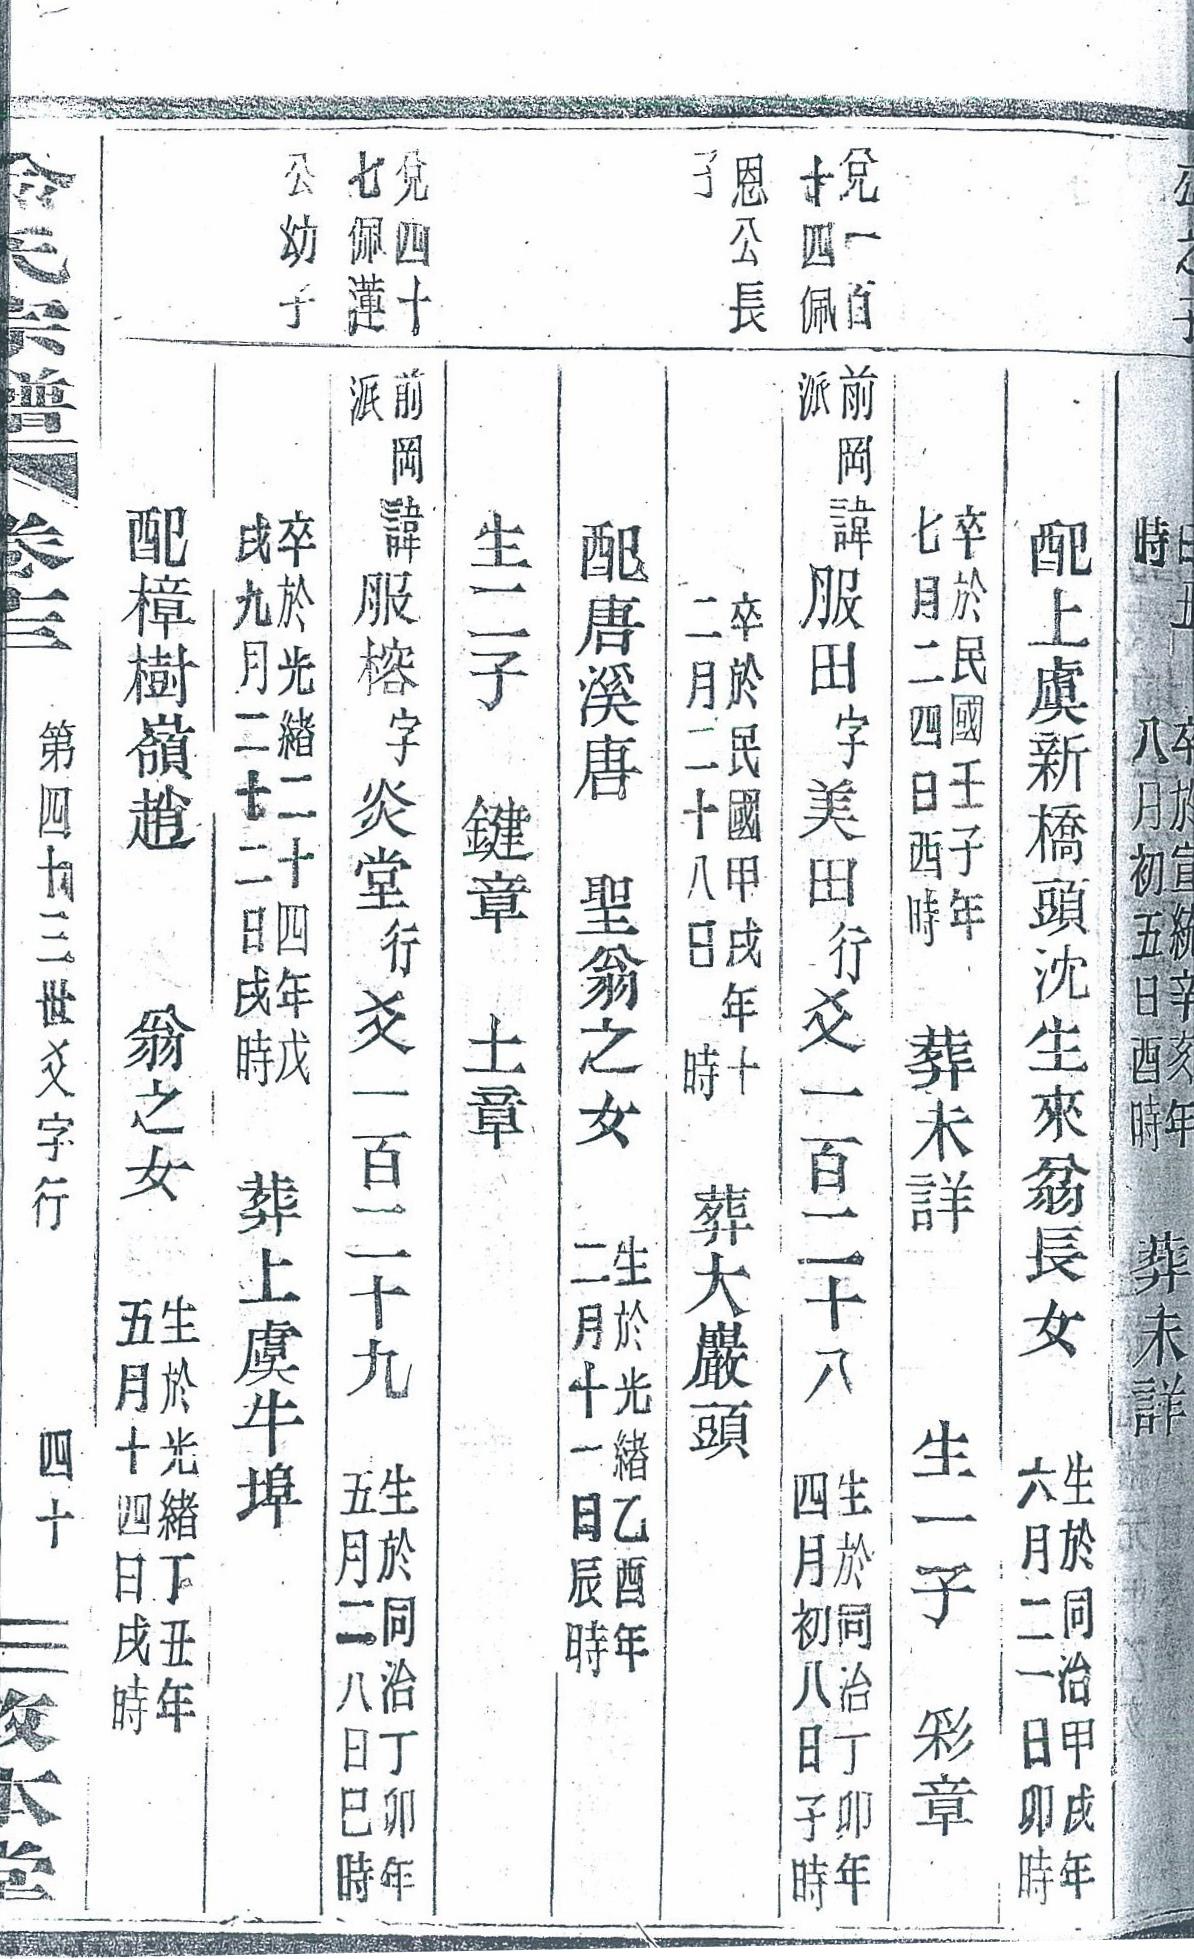 日 卒於宣統辛亥年
時 八月初五日酉時 葬未詳
配上虞新橋頭沈生來翁長女 生於同治甲戌年
六月二一日卯時
卒於民國壬子年
七月二四日酉時 葬未詳 生一子 彩章
兌一百
十四佩
恩公長
子
前岡
派
諱服田字美田行爻一百二十八 生於同治丁卯年
四月初八日子時
卒於民國甲戌年十
二月二十八日 時 葬大巖頭
配唐溪唐 聖翁之女 生於光緒乙酉年
二月十一日辰時
生二子 鍵章 土章
兌四十
七佩蓮
公幼子
前岡
派
諱服榕字炎堂行爻一百二十九 生於同治丁卯年
五月二八日巳時
卒於光緒二十四年戊
戌九月二十二日戌時 葬上虞牛埠
配樟樹嶺趙 翁之女 生於光緒丁丑年
五月十四日戌時
氏宗譜 卷三 第四十三世爻字行 四十 敦本堂